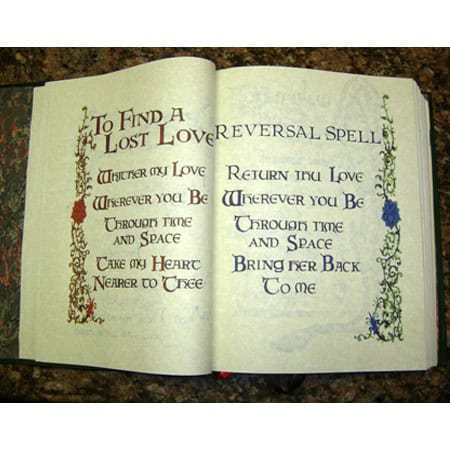 To Find A
Lost Love
Whither my Love
Wherever you Be
Through time
and Space
Take my Heart
Nearer to Thee
Reversal Spell
Return thu Love
Wherever you Be
Through time
and Space
Bring her Back
To me